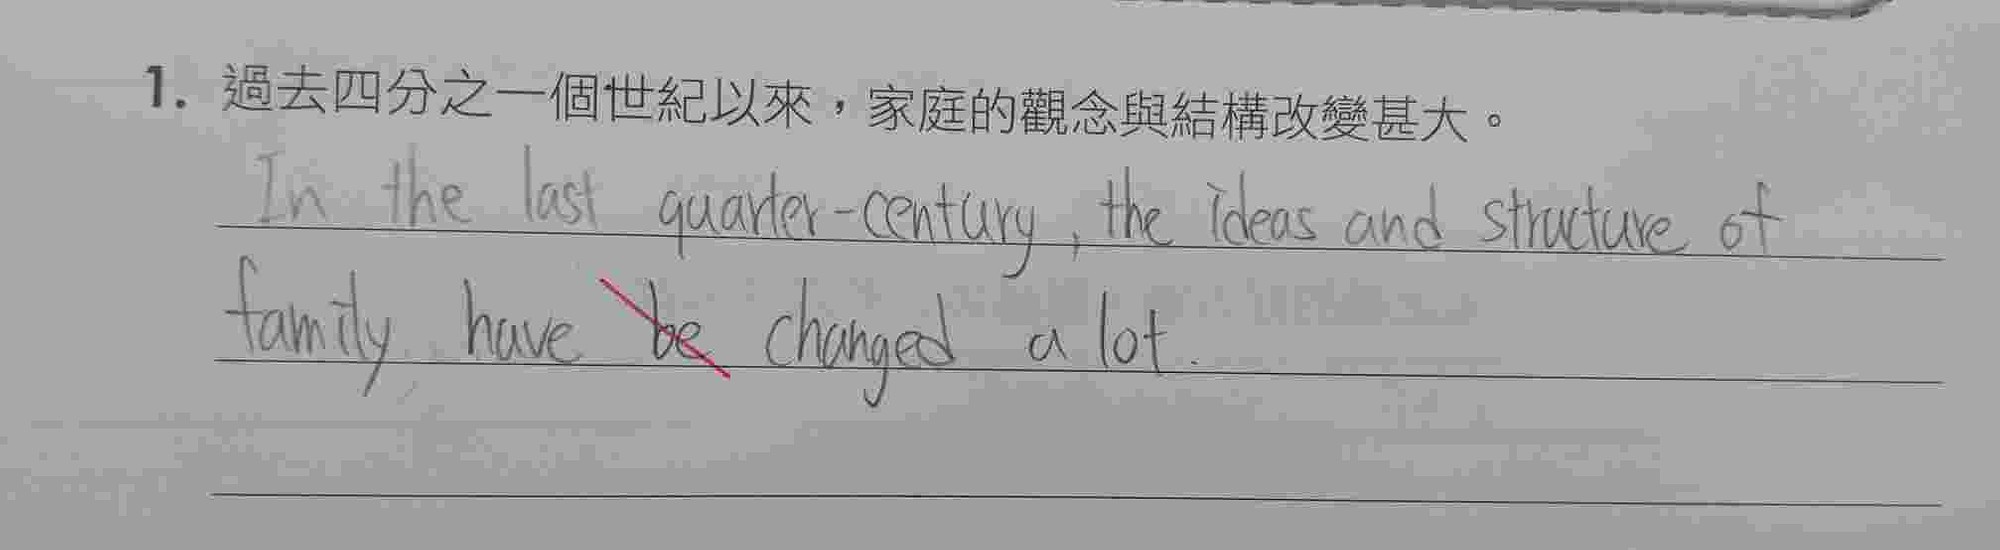 1. 過去四分之一個世紀以來，家庭的觀念與結構改變甚大。
In the last quarter-century, the ideas and structure of
family have be changed a lot.